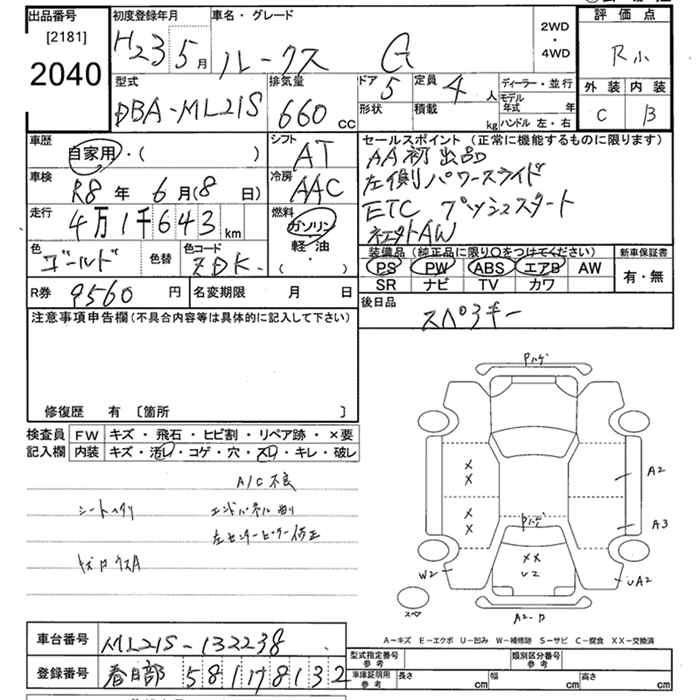 出品番号
[2181]
2040
初度登録年月
H23 5月
車名・グレード
ルークス G
2WD
・
4WD
評価点
R小
外装 内装
C B
型式
DBA-ML21S
排気量
660 cc
ドア 5
定員 4 人
形状
積載 kg
ディーラー・並行
モデル年式 年
ハンドル 左・右
車歴
自家用・( )
車検
R8年 6月(8日)
走行
4万1千643 km
色
ゴールド
色替
色コード
ZDK
シフト
AT
冷房
AAC
燃料
ガソリン
軽油
( ・ )
セールスポイント (正常に機能するものに限ります)
AA初出品
左側パワースライド
ETC プッシュスタート
社外AW
装備品(純正品に限り○をつけてください)
PS PW ABS エアB AW
SR ナビ TV カワ
新車保証書
有・無
R券 9560 円
名変期限 月 日
後日品
スペアキー
注意事項申告欄(不具合内容等は具体的に記入して下さい)
修復歴 有 〔箇所 〕
検査員記入欄
FW キズ・飛石・ヒビ割・リペア跡・×要
内装 キズ・汚レ・コゲ・穴・スレ・キレ・破レ
A/C不良
シートヘタリ
エンドパネル
左センターピラー修正
Pハゲ
X
X
X
X
A2
A3
Pハゲ
XX
U2
W2
UA2
スペア
A2-P
A-キズ E-エクボ U-凹み W-補修跡 S-サビ C-腐食 XX-交換済
車台番号
ML21S-132238
登録番号
春日部 581 8132
型式指定番号
参考
類別区分番号
参考
車庫証明用
参考
長さ cm
幅 cm
高さ cm